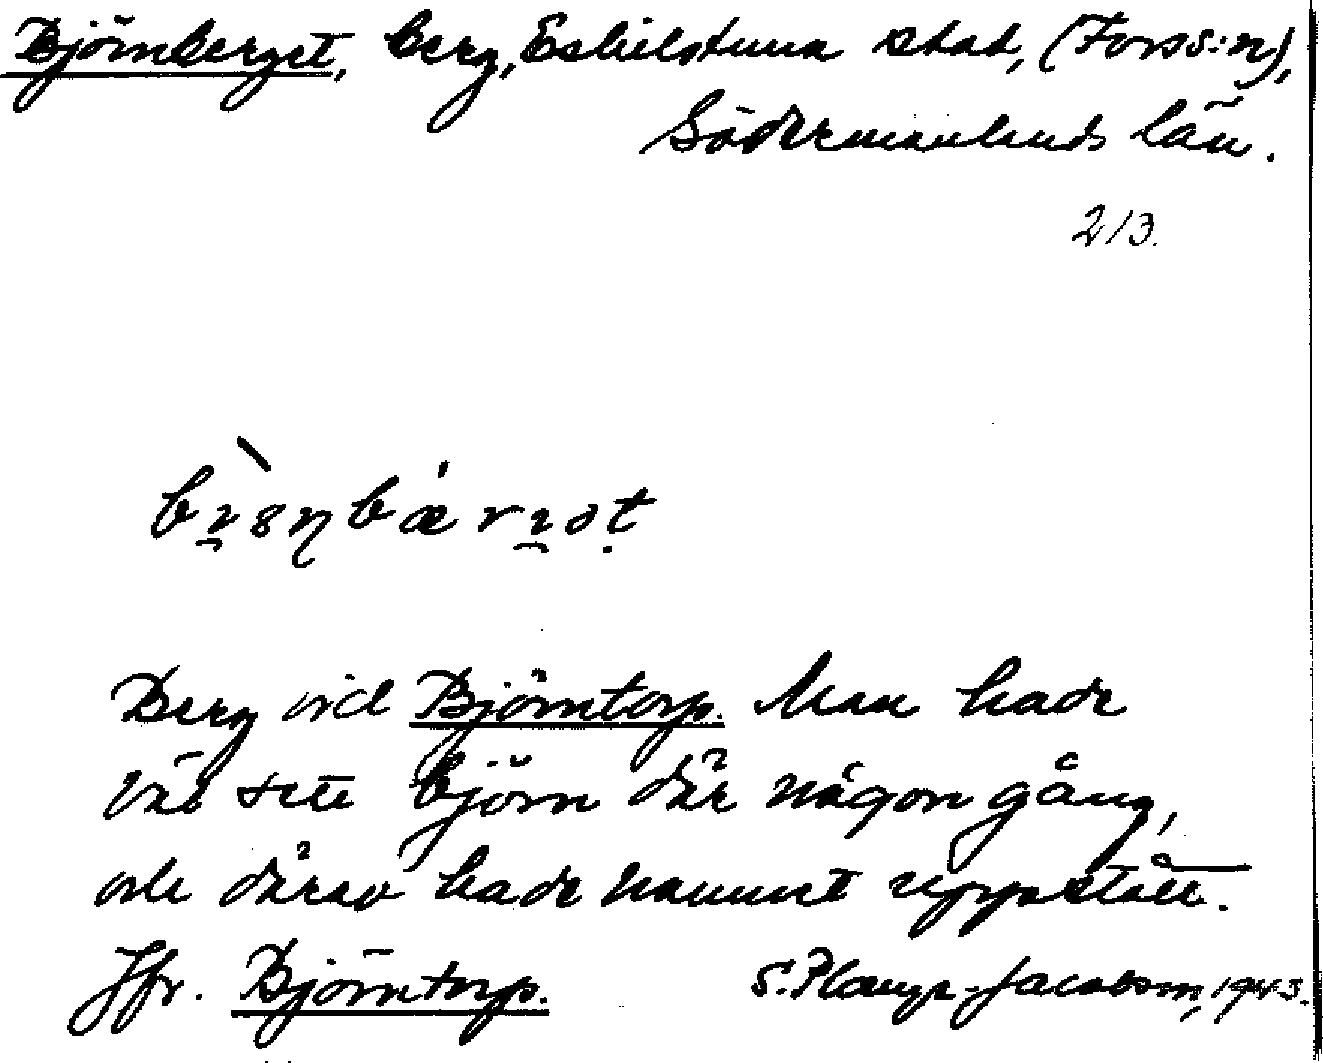 Björnberget, berg, Eskilstuna stad, (Fors s:n),
Södermanlands län.
213.
Berg vid Björntorp. Man hade
väl sett björn där någon gång,
och därav hade namnet uppstått.
Jfr. Björntorp. S. Plange-Jacobson, 1943.